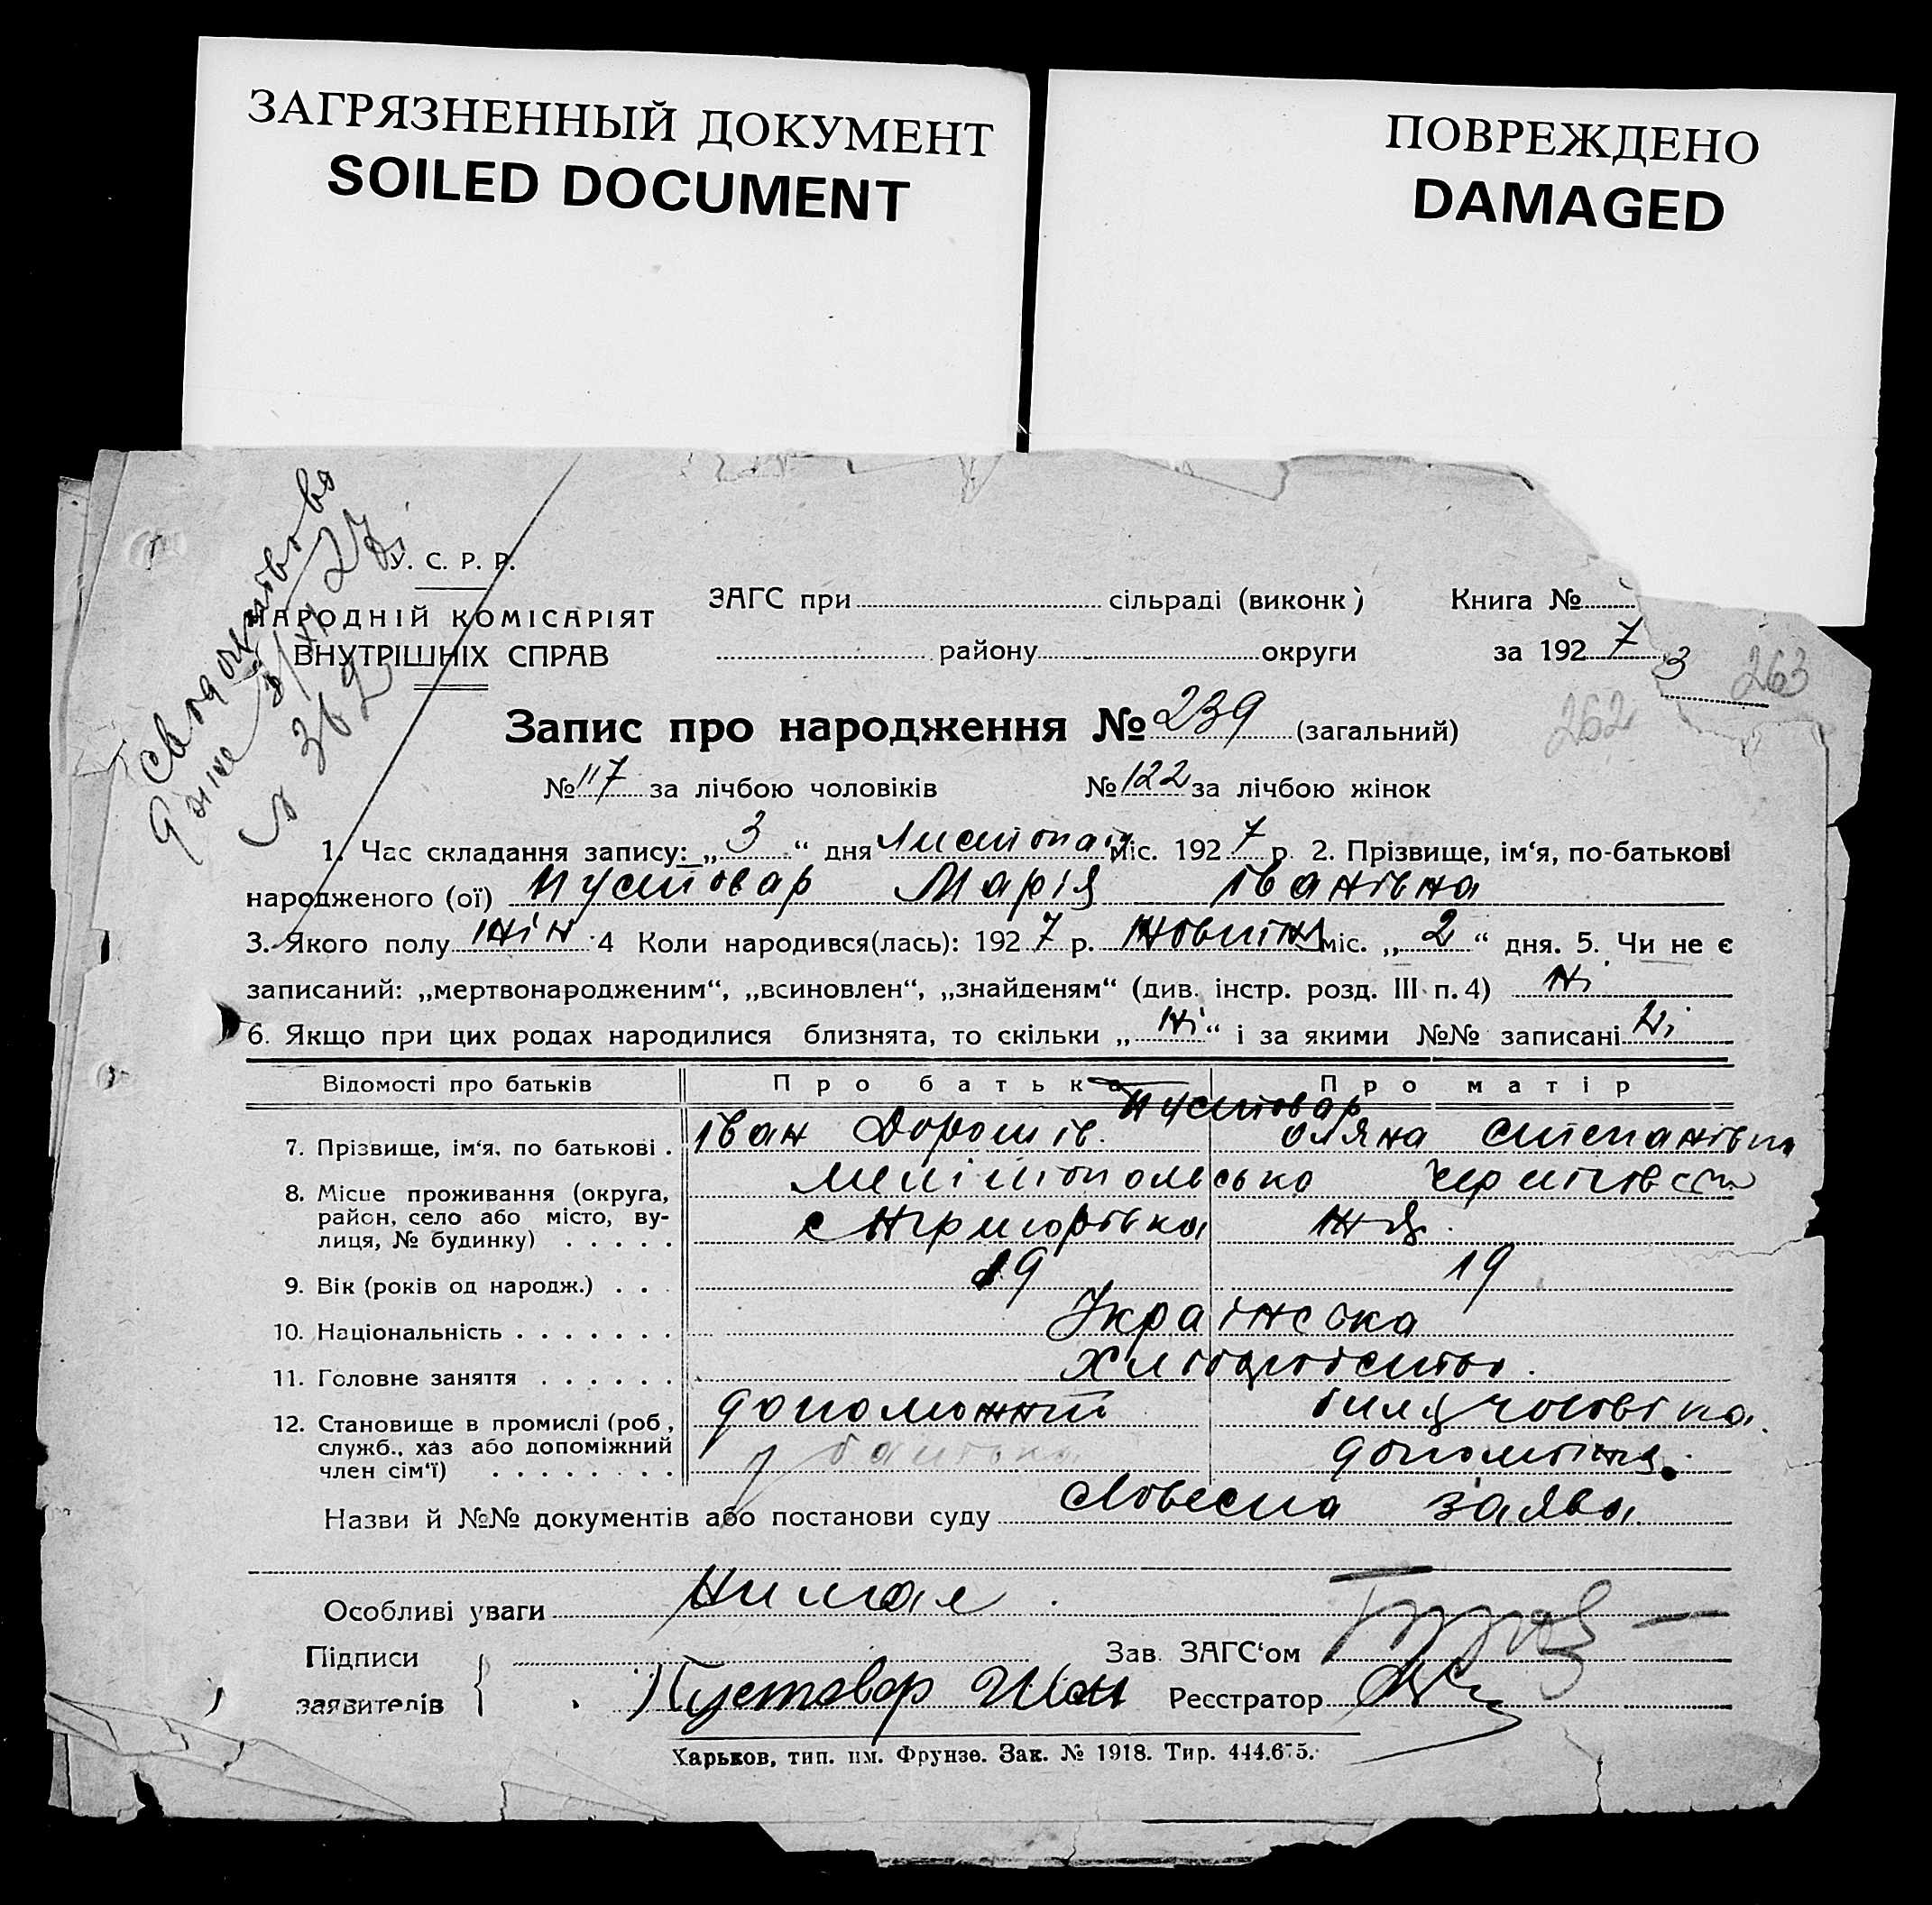 ЗАГРЯЗНЕННЫЙ ДОКУМЕНТ
SOILED DOCUMENT
ПОВРЕЖДЕНО
DAMAGED
У. С. Р. Р.
НАРОДНІЙ КОМІСАРІЯТ
ВНУТРІШНІХ СПРАВ
3/XI 27
№ 362
ЗАГС при сільраді (виконк) Книга №
району округи за 1927
3 263
262
Запис про народження № 239 (загальний)
№ 117 за лічбою чоловіків № 122 за лічбою жінок
1. Час складання запису: „ 3 “ дня Листопад міс. 1927 р. 2. Прізвище, ім‘я, по-батькові
народженого (ої) Пустовар Марія Іванівна
3. Якого полу жін 4 Коли народився(лась): 1927 р. Жовтня міс. „ 2 “ дня. 5. Чи не є
записаний: „мертвонародженим“, „всиновлен“, „знайденям“ (див. інстр. розд. III п. 4) Ні
6. Якщо при цих родах народилися близнята, то скільки „ Ні “ і за якими №№ записані Ні
Відомості про батьків Про батька Про матір
Пустовар
7. Прізвище, ім‘я, по батькові . Іван Дорошів. Оляна Степанівна
8. Місце проживання (округа, район, село або місто, вулиця, № будинку) Мелітопольська
9. Вік (років од народж.) . . . 19 19
10. Національність . . . . . . . Українська
11. Головне заняття . . . . . . Хліборобство.
12. Становище в промислі (роб, служб., хаз або допоміжний член сім‘ї) . . . . . . . . батька чоловіка
Назви й №№ документів або постанови суду Словесна заява
Особливі уваги Нимає
Підписи Зав. ЗАГС‘ом
заявителів Пустовар Иван Реєстратор
Харьков, тип. им. Фрунзе. Зак. № 1918. Тир. 444.675.